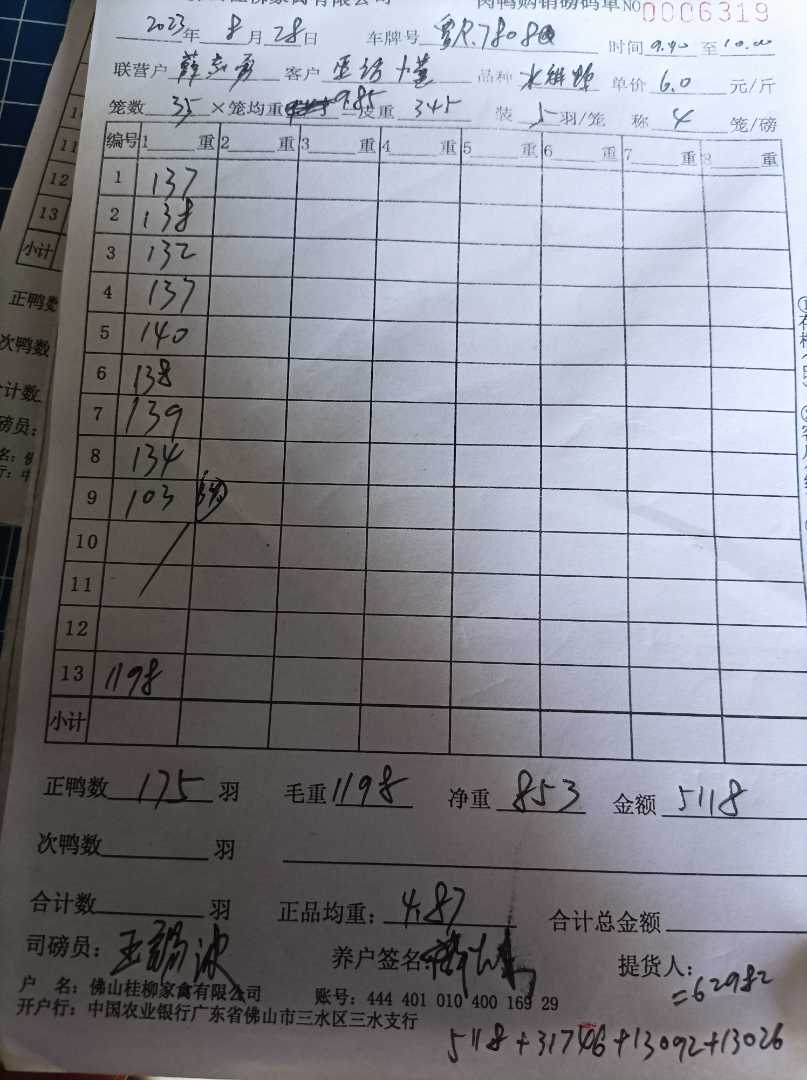 肉鸭购销磅码单 NO 0006319
2023年 8月 28日 车牌号 7808Q 时间 9.40 至 10.00
联营户 客户 品种 单价 6.0 元/斤
笼数 35 ×笼均重 9.85 =皮重 345 装 5 羽/笼 称 4 笼/磅
编号 1 重 2 重 3 重 4 重 5 重 6 重 7 重 8 重
1 137
2 138
3 132
4 137
5 140
6 138
7 139
8 134
9 103
10
11
12
13 1198
小计
正鸭数 175 羽 毛重 1198 净重 853 金额 5118
次鸭数 羽
合计数 羽 正品均重: 4.87 合计总金额
司磅员: 王锡波 养户签名: 提货人:
=62982
户 名: 佛山桂柳家禽有限公司 账号: 444 401 010 400 169 29
开户行: 中国农业银行广东省佛山市三水区三水支行
5118+31746+13092+13026
11
12
13
小计
正鸭数
次鸭数
合计数
磅员: